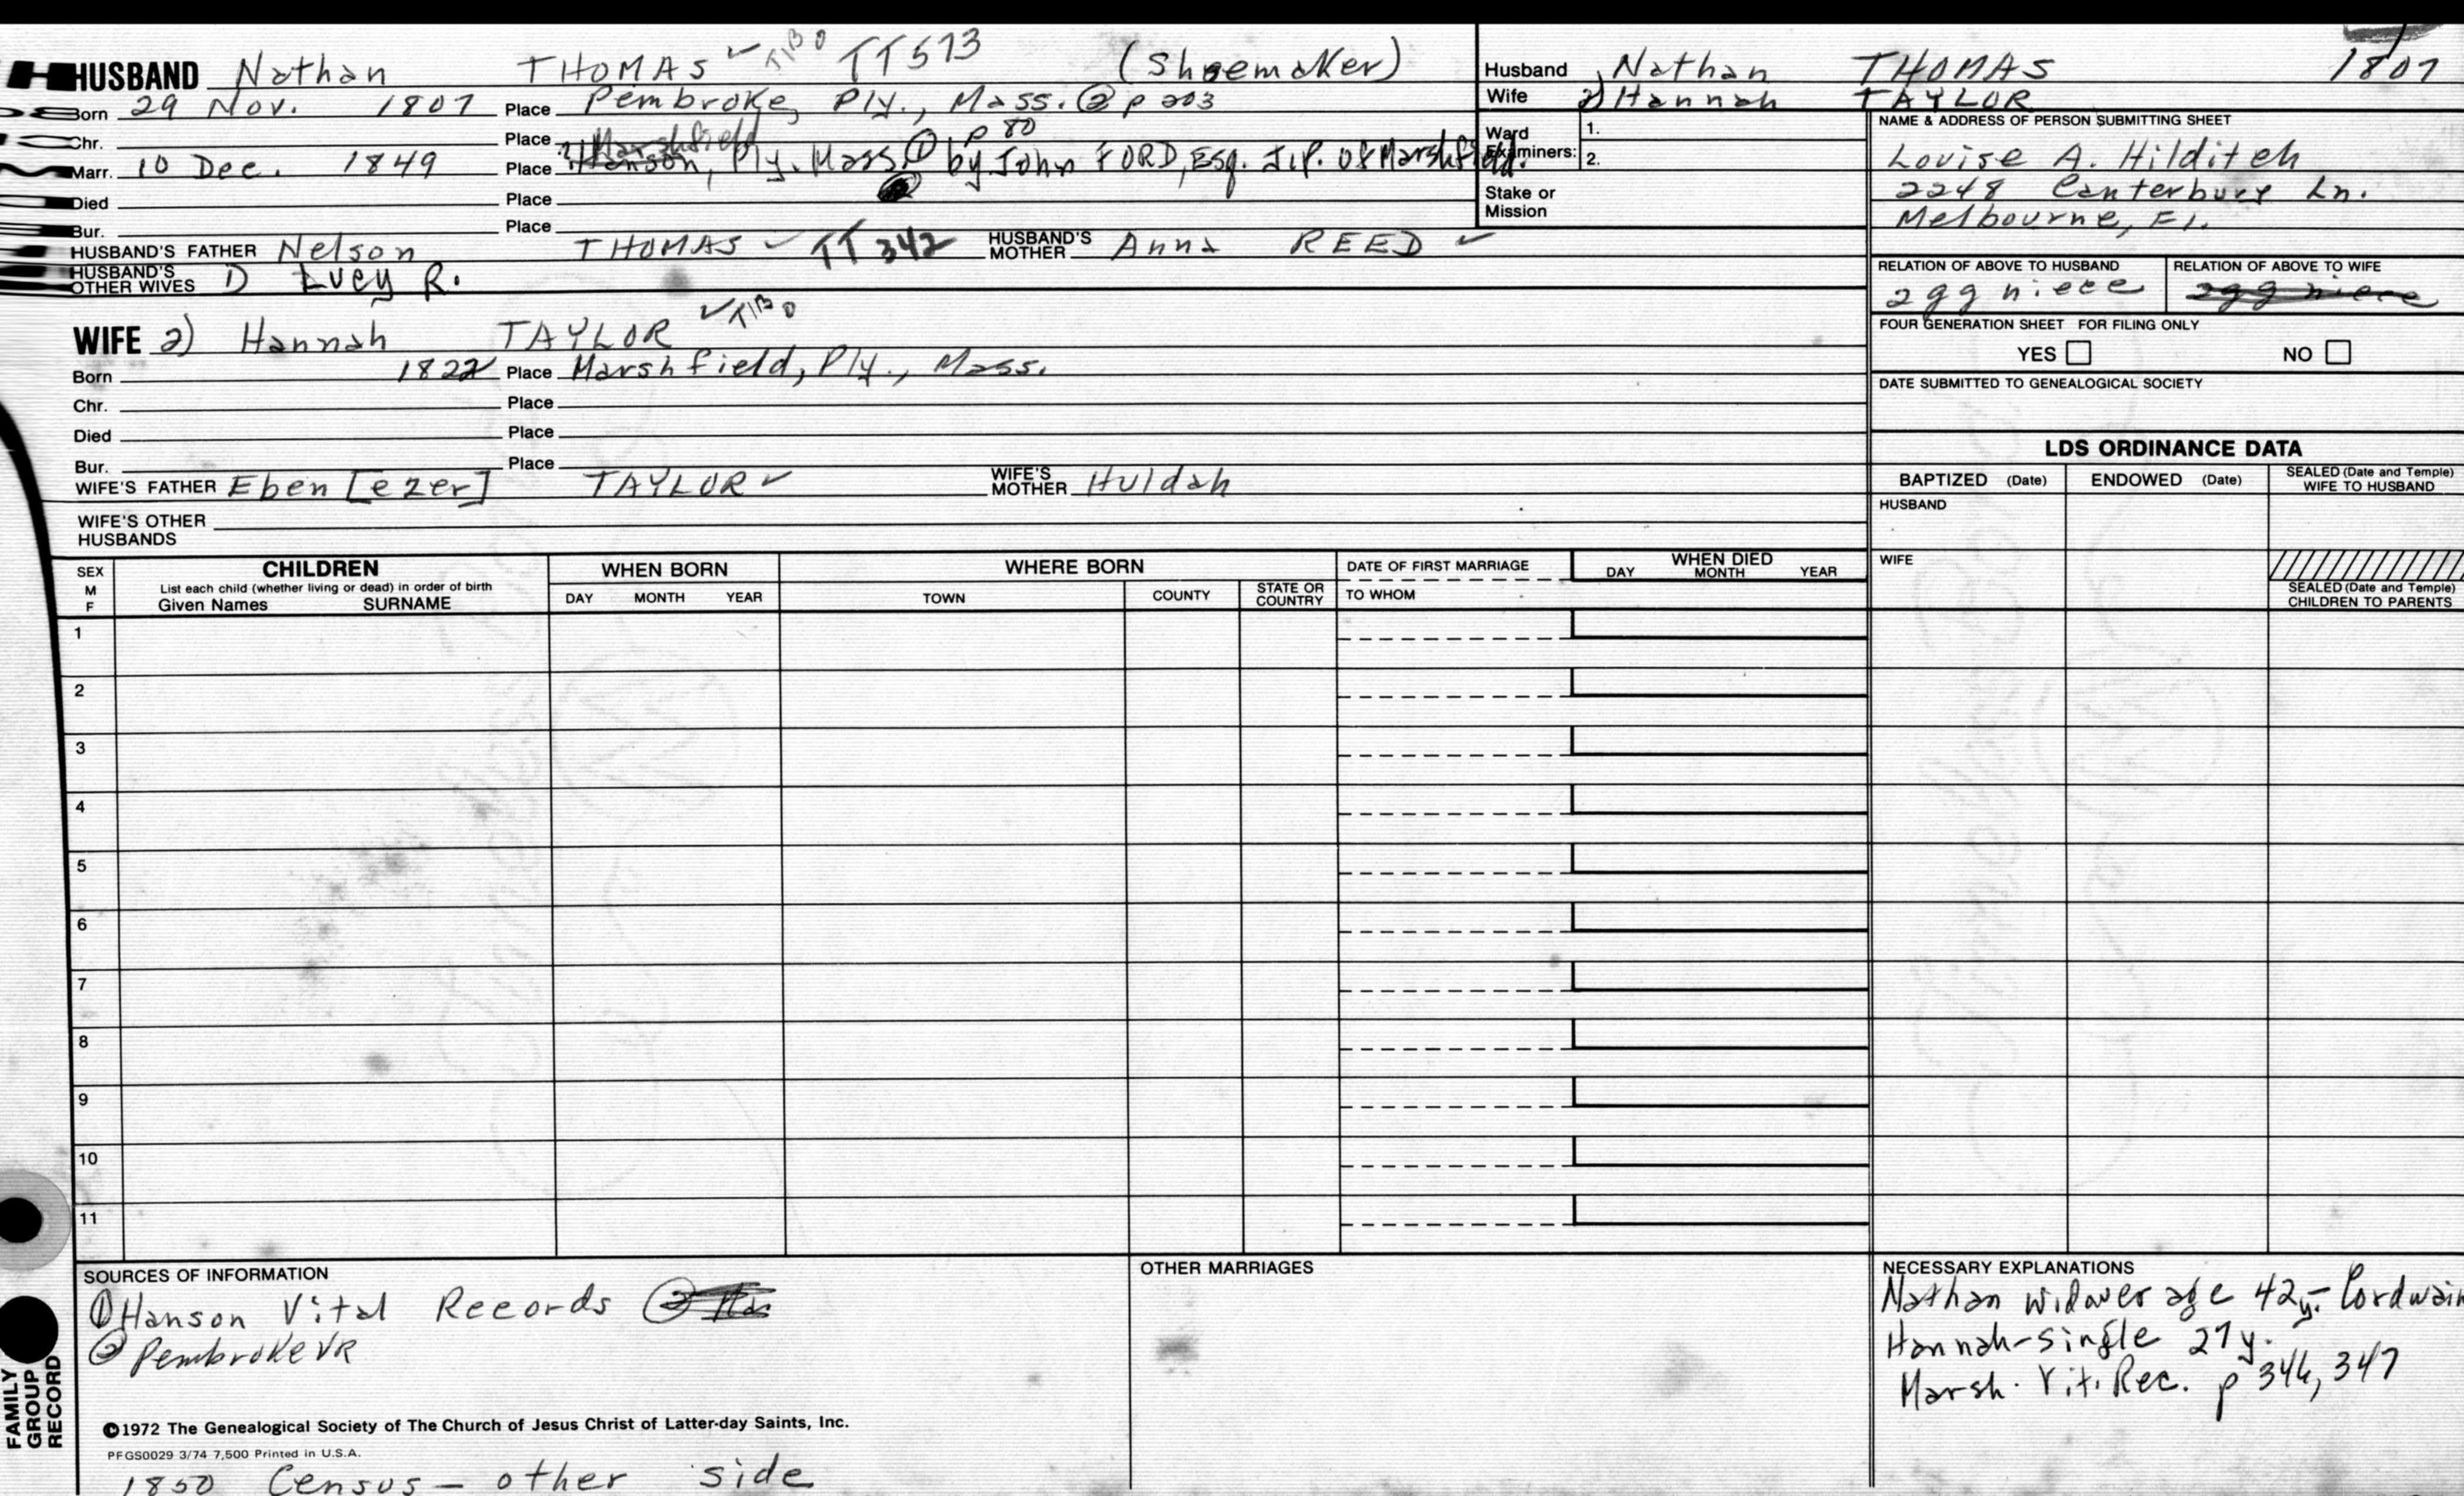 HUSBAND Nathan THOMAS ✓ TIBO TT573 (Shoemaker)
Born 29 Nov. 1807 Place Pembroke, Ply., Mass. ② p 203
Chr. Place Marshfield p 80
Marr. 10 Dec. 1849 Place Hanson, Ply. Mass. ① by John FORD, Esq. J.P. of Marshfield.
Died Place
Bur. Place
HUSBAND'S FATHER Nelson THOMAS ✓ TT 342 HUSBAND'S MOTHER Anna REED ✓
HUSBAND'S OTHER WIVES 1) Lucy R.
WIFE 2) Hannah TAYLOR ✓ TIBO
Born 1822 Place Marshfield, Ply., Mass.
Chr. Place
Died Place
Bur. Place
WIFE'S FATHER Eben[ezer] TAYLOR ✓ WIFE'S MOTHER Huldah
WIFE'S OTHER HUSBANDS
Husband Nathan THOMAS 1807
Wife 2) Hannah TAYLOR
Ward Examiners: 1.
2.
Stake or Mission
NAME & ADDRESS OF PERSON SUBMITTING SHEET
Louise A. Hilditch
2248 Canterbury Ln.
Melbourne, Fl.
RELATION OF ABOVE TO HUSBAND RELATION OF ABOVE TO WIFE
2gg niece 2gg niece
FOUR GENERATION SHEET FOR FILING ONLY
YES NO
DATE SUBMITTED TO GENEALOGICAL SOCIETY
LDS ORDINANCE DATA
BAPTIZED (Date) ENDOWED (Date) SEALED (Date and Temple) WIFE TO HUSBAND
HUSBAND
WIFE
SEALED (Date and Temple) CHILDREN TO PARENTS
SEX M F CHILDREN WHEN BORN WHERE BORN DATE OF FIRST MARRIAGE WHEN DIED
List each child (whether living or dead) in order of birth
Given Names SURNAME DAY MONTH YEAR TOWN COUNTY STATE OR COUNTRY TO WHOM DAY MONTH YEAR
1
2
3
4
5
6
7
8
9
10
11
SOURCES OF INFORMATION
① Hanson Vital Records ②
② Pembroke VR
©1972 The Genealogical Society of The Church of Jesus Christ of Latter-day Saints, Inc.
PFGS0029 3/74 7,500 Printed in U.S.A.
1850 Census - other side
OTHER MARRIAGES
NECESSARY EXPLANATIONS
Nathan widower age 42y - Cordwain
Hannah - single 27y.
Marsh. Vit. Rec. p 346, 347
FAMILY GROUP RECORD